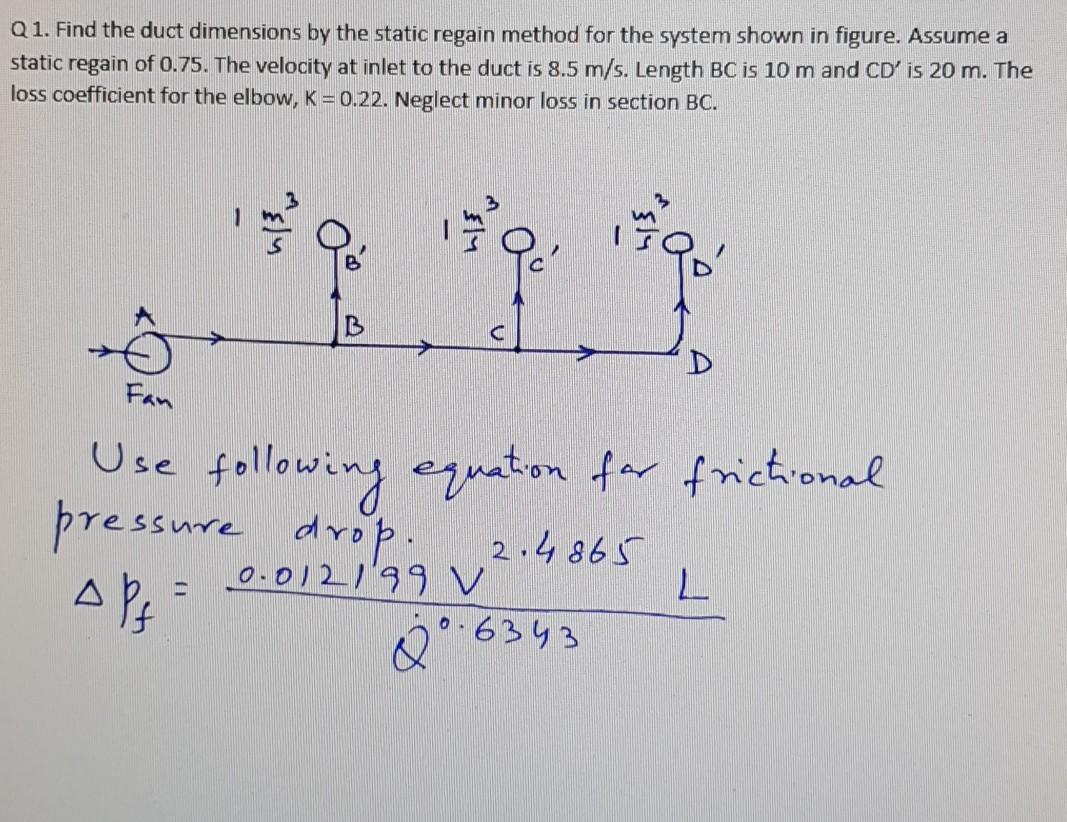 Q 1. Find the duct dimensions by the static regain method for the system shown in figure. Assume a
static regain of 0.75. The velocity at inlet to the duct is 8.5 m/s. Length BC is 10 m and CD′ is 20 m. The
loss coefficient for the elbow, K = 0.22. Neglect minor loss in section BC.
1 m³/s B′
1 m³/s C′
1 m³/s D′
A
B
C
D
Fan
Use following equation for frictional
pressure drop.
Δp_f = 0.012199 V^2.4865 L / Q̇^0.6343